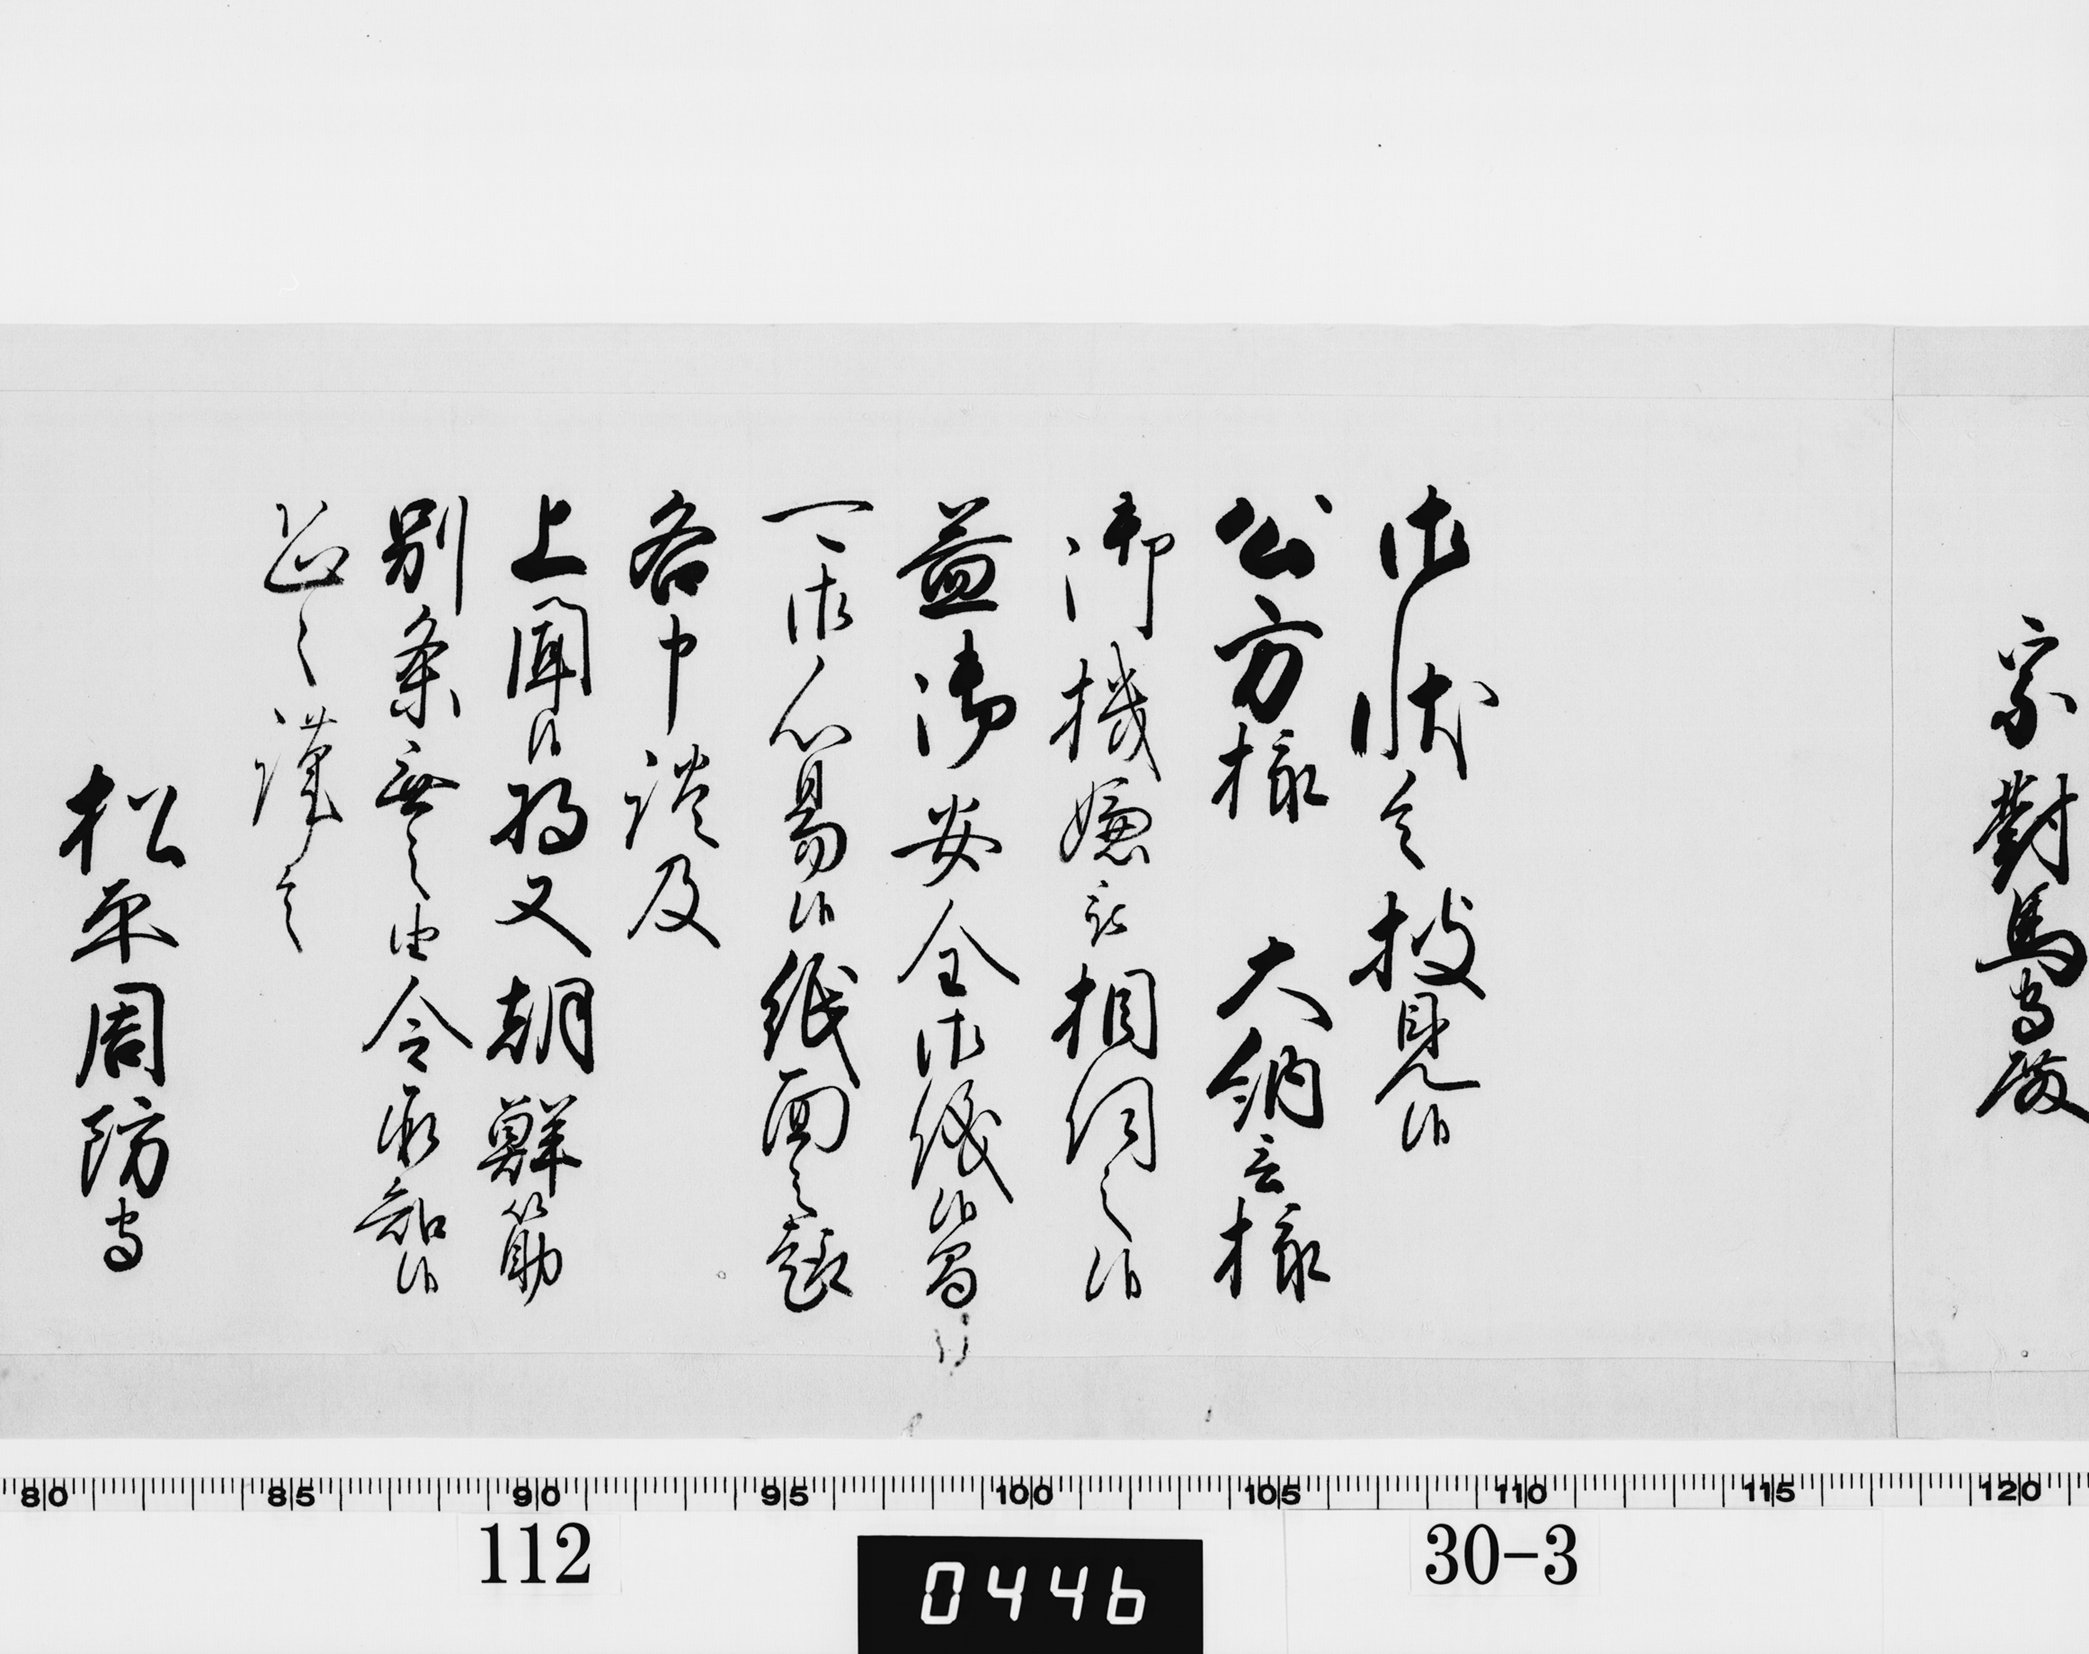 宗對馬守殿
御状令披見候
公方様 大納言様
御機嫌被相伺之候
益御安全御儀候
可御心易候紙面之趣
各申談及
上聞候将又朝鮮筋
別条無之由令承知候
恐々謹言
松平周防守
80 85 90 95 100 105 110 115 120
112
0446
30-3